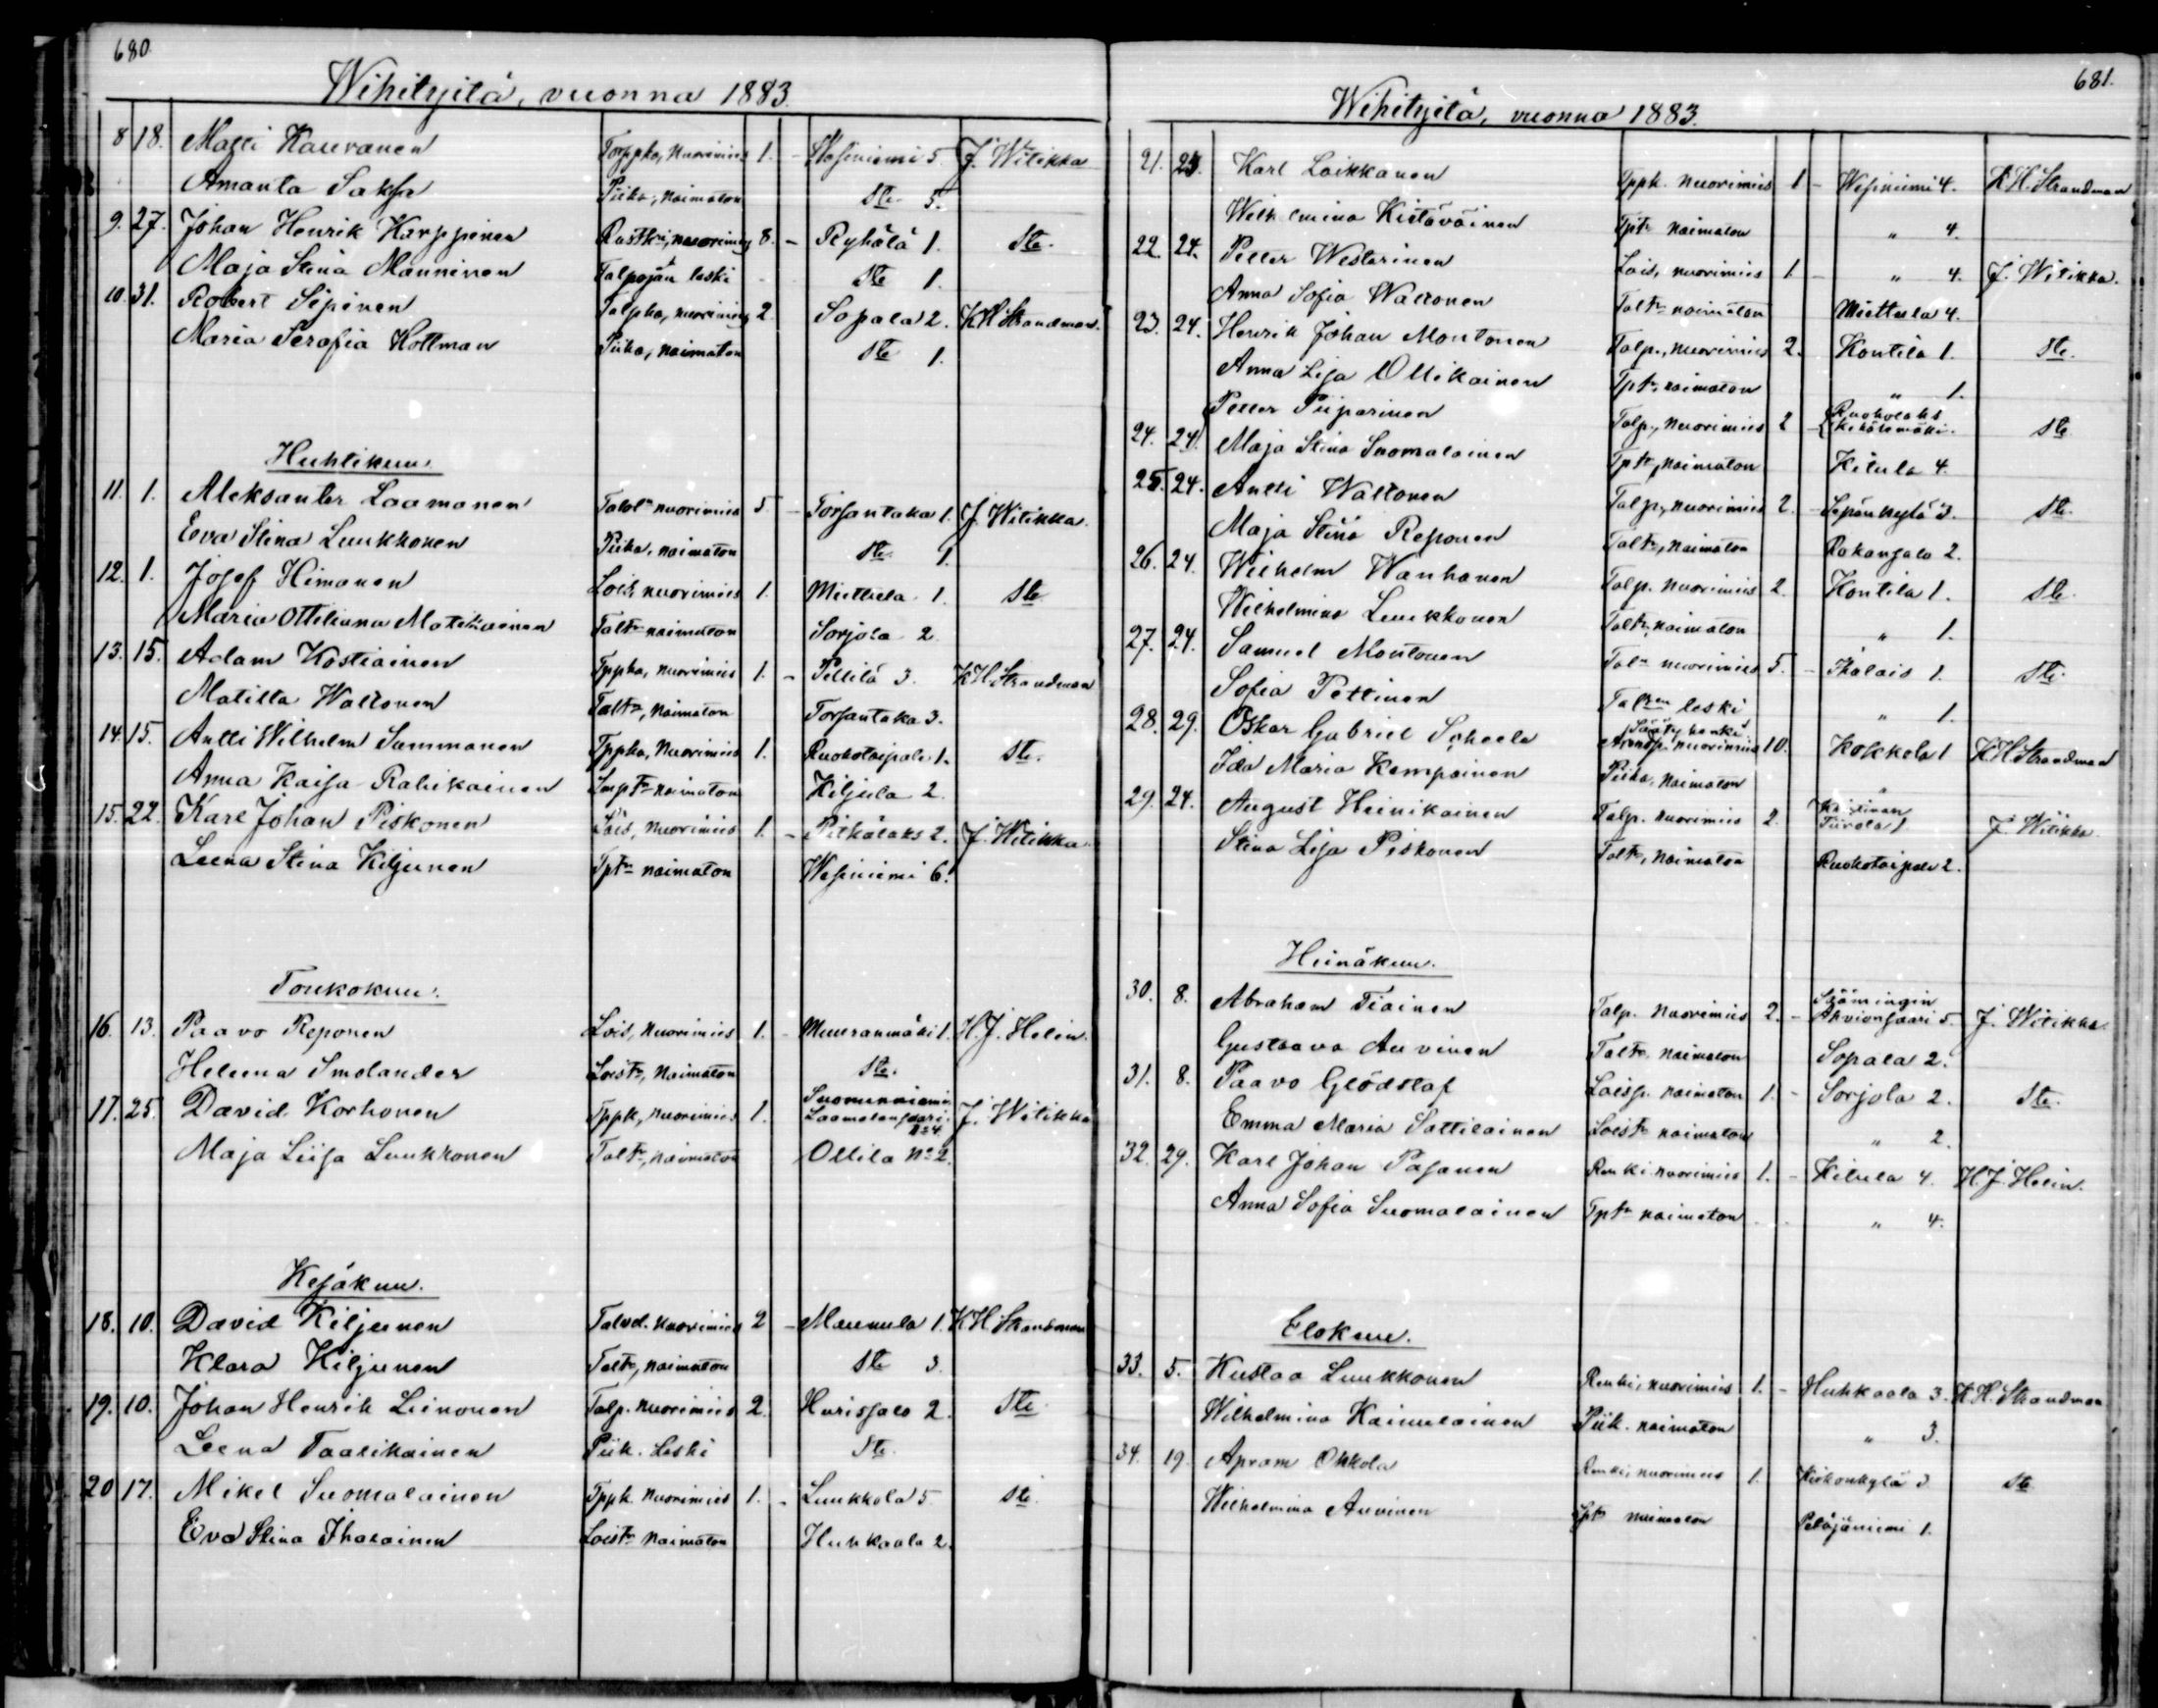 680.
Wihityitä, vuonna 1883.
8 18. Matti Kauranen Torppha, nuorimies 1. - Wesiniemi 5. J. Witikka
Amanta Saksa Piika, naimaton Ste 5.
9. 27. Johan Henrik Karppinen nuorimies 8. - Ryhälä 1. Ste.
Maja Stina Manninen leski Ste 1.
10. 31. Robert Sipinen Talpha, nuorimies 2. Sopala 2. K H Strandman.
Maria Serafia Hottman Piika, naimaton Ste 1.
Huhtikuu.
11. 1. Aleksanter Laamanen nuorimies 5 - Torsantaka 1. J. Witikka.
Eeva Stina Luukkonen Piika, naimaton Ste. 1.
12. 1. Josef Himanen Lois, nuorimies 1. Miettula 1. Ste.
Maria Ottiliana Matikainen Taltr naimaton Sorjola 2.
13. 15. Adam Kostiainen Tppha, nuorimies 1. - Pellilä 3. K H Strandman
Matilta Waltonen Taltr, naimaton Torsantaka 3.
14. 15. Antti Wilhelm Summanen Tppha, nuorimies 1. Ruokotaipale 1. Ste.
Anna Kaisa Rahikainen naimaton Kiljula 2.
15. 22. Karl Johan Piskonen Lois, nuorimies 1. - Pitkälaks 2. J. Witikka.
Leena Stina Kiljunen Tptr naimaton Wesiniemi 6.
Toukokuu.
16. 13. Paavo Reponen Lois, nuorimies 1. - Muuranmäki 1. H. J. Helin.
Heleena Smolander Loistr, naimaton Ste.
17. 25. David Korhonen Tppk, nuorimies 1. Suomenniemi Laamalansaari No 4 J. Witikka
Maja Liisa Luukkonen Taltr, naimaton Ollila No 2.
Kesäkuu.
18. 10. David Kiljunen nuorimies 2 - Maunula 1. K H Strandman
Klara Kiljunen Taltr, naimaton Ste 3.
19. 10. Johan Henrik Leinonen Talp. nuorimies 2. Hurissalo 2. Ste
Leena Taarikainen Piik. leski Ste.
20 17. Mikel Suomalainen Tppk. nuorimies 1. - Luukkola 5 Ste.
Eva Stina Ihalainen Loistr naimaton Huhkaala 2.
681.
Wihityitä, vuonna 1883.
21. Karl Laikkanen Tppk. nuorimies 1 - Wesiniemi 4. K H. Strandman
Wilhelmina Kietäväinen Tptr naimaton " 4.
22. 24. Petter Westerinen Lois, nuorimies 1. - " 4. J. Witikka.
Anna Sofia Waltonen Taltr naimaton Miettula 4.
23. 24. Henrik Johan Montonen Talp., nuorimies 2. Kontila 1. Ste.
Anna Lisa Ollikainen Tptr naimaton " 1.
Petter Piiparinen Talp., nuorimies 2 - Ruokolaks Ste
24. 24. Maja Stina Suomalainen Tptr, naimaton Kilula 4.
25. 24. Antti Waltonen Talp., nuorimies 2. - Sepänkylä 3. Ste.
Maja Stina Reponen Taltr, naimaton Rakansalo 2.
26. 24. Wilhelm Wanhanen Talp. nuorimies 2. Kontila 1. Ste.
Wilhelmina Luukkonen Taltr, naimaton " 1.
27. 24. Samuel Montonen nuorimies 5. - Ihalais 1. Ste.
Sofia Pettinen leski " 1.
28. 29. Oskar Gabriel Scheele nuorimies 10. Kokkola 1 K H Strandman
Ida Maria Kemppainen Piika, naimaton "
29. 24. August Heinikainen Talp. nuorimies 2. Tiirola 1. J. Witikka.
Stina Lisa Piskonen Taltr, naimaton Ruokotaipale 2.
Heinäkuu.
30. 8. Abraham Tiainen Talp. nuorimies 2. - Säämingin Ahvionsaari 5. J. Witikka.
Gustaava Auvinen Taltr. naimaton Sopala 2.
31. 8. Paavo Glödstaf Loisp. naimaton 1. - Sorjola 2. Ste.
Emma Maria Sattilainen Loistr naimaton " 2.
32. 29. Karl Johan Pasanen Renki nuorimies 1. - Kilula 4. H. J. Helin.
Anna Sofia Suomalainen Tptr naimaton " 4.
Elokuu.
33. 5. Kustaa Luukkonen Renki, nuorimies 1. - Huhkaala 3. K. H. Strandman
Wilhelmina Kainulainen Piik. naimaton " 3.
34. 19. Apram Ohkola Renki, nuorimies 1. Kirkonkylä Ste
Wilhelmina Auvinen naimaton Petäjäniemi 1.